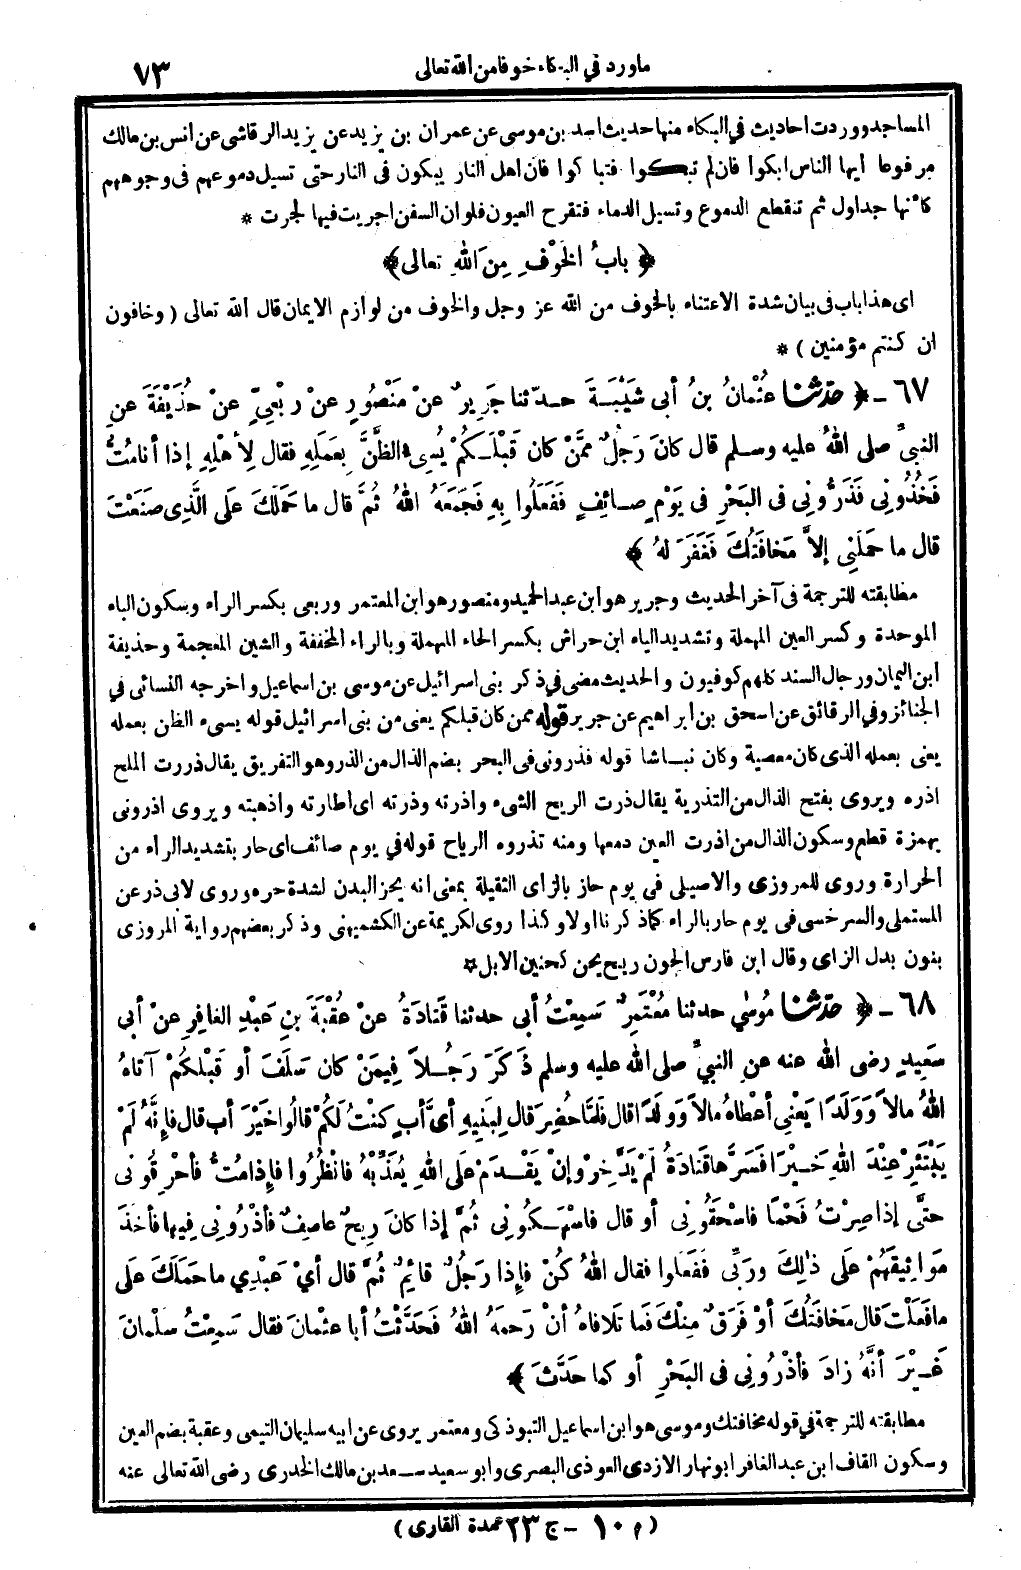 ماورد في البكاء خوفا من الله تعالى
٧٣
المساجد ووردت احاديث في البكاء منها حديث اسد بن موسى عن عمران بن يزيد عن يزيد الرقاشى عن انس بن مالك
مرفوعا ايها الناس ابكوا فان لم تبكوا فتباكوا فان اهل النار يبكون فى النار حتى تسيل دموعهم فى وجوههم
كأنها جداول ثم تنقطع الدموع وتسيل الدماء فتقرح العيون فلو ان السفن اجريت فيها لجرت *
﴿ بابُ الخَوْفِ مِنَ اللهِ تعالى ﴾
اى هذا باب فى بيان شدة الاعتناء بالخوف من الله عز وجل والخوف من لوازم الايمان قال الله تعالى ( وخافون
ان كنتم مؤمنين ) *
٦٧ - ﴿ حدّثنا عُثْمانُ بنُ أبى شَيْبَةَ حدّثنا جَرِيرٌ عنْ مَنْصُورٍ عنْ رِبْعِيٍّ عنْ حُذَيْفَةَ عنِ
النبيِّ صلى اللهُ عليه وسلم قال كانَ رَجُلٌ مِمَّنْ كان قَبْلَكُمْ يُسِىءُ الظَّنَّ بِعَمَلِهِ فقال لِأهْلِهِ إذا أنامُتُّ
فَخُذُونِى فَذَرُّونِى فى البَحْرِ فى يَوْمٍ صائِفٍ فَفَعَلُوا بِهِ فَجَمَعَهُ اللهُ ثُمَّ قال ما حَمَلَكَ عَلَى الَّذِى صَنَعْتَ
قال ما حَمَلَنِى إلاَّ مَخافَتُكَ فَغَفَرَ لهُ ﴾
مطابقته للترجمة فى آخر الحديث وجرير هو ابن عبد الحميد ومنصور هو ابن المعتمر وربعى بكسر الراء وسكون الباء
الموحدة وكسر العين المهملة وتشديد الياء ابن حراش بكسر الحاء المهملة وبالراء المخففة والشين المعجمة وحذيفة
ابن اليمان ورجال السند كلهم كوفيون والحديث مضى في ذكر بنى اسرائيل عن موسى بن اسماعيل واخرجه النسائى في
الجنائز وفي الرقائق عن اسحق بن ابراهيم عن جرير قوله ممن كان قبلكم يعنى من بنى اسرائيل قوله يسىء الظن بعمله
يعنى بعمله الذى كان معصية وكان نباشا قوله فذرونى فى البحر بضم الذال من الذر وهو التفريق يقال ذررت الملح
اذره ويروى بفتح الذال من التذرية يقال ذرت الريح الشىء واذرته وذرته اى اطارته واذهبته ويروى اذرونى
بهمزة قطع وسكون الذال من اذرت العين دمعها ومنه تذروه الرياح قوله في يوم صائف اى حار بتشديد الراء من
الحرارة وروى للمروزى والاصيلى فى يوم حاز بالزاى الثقيلة بمعنى انه يحز البدن لشدة حره وروى لابى ذر عن
المستملى والسرخسى فى يوم حار بالراء كما ذكرنا اولا وكذا روى لكريمة عن الكشميهنى وذكر بعضهم رواية المروزى
بنون بدل الزاى وقال ابن فارس الجون ريح يحن كحنين الابل *
٦٨ - ﴿ حدّثنا مُوسَى حدثنا مُعْتَمِرٌ سَمِعْتُ أبى حدثنا قَتادَةُ عنْ عُقْبَةَ بنِ عَبْدِ الغافِرِ عنْ أبى
سَعِيدٍ رضى الله عنه عنِ النبيِّ صلى الله عليه وسلم ذَكَرَ رَجُلاً فِيمَنْ كان سَلَفَ أو قَبْلَكُمْ آتاهُ
اللهُ مالاً وَوَلَدًا يَعْنِى أعْطاهُ مالاً وَوَلَدًا قال فَلَمَّا حُضِرَ قال لِبَنِيهِ أىَّ أبٍ كنْتُ لَكُمْ قالُوا خَيْرَ أبٍ قال فإنَّهُ لَمْ
يَبْتَئِرْ عِنْدَ اللهِ خَيْرًا فَسَّرَها قَتادَةُ لَمْ يَدَّخِرْ وإنْ يَقْدَمْ عَلَى اللهِ يُعَذِّبْهُ فانْظُرُوا فإِذا مُتُّ فأحْرِقُونى
حتَّى إذا صِرْتُ فَحْمًا فاسْحَقُونِى أو قال فاسْهَكُونِى ثُمَّ إذا كانَ رِيحٌ عاصِفٌ فأذْرُونِى فِيها فأخَذَ
مَوَاثِيقَهُمْ عَلَى ذٰلِكَ ورَبِّى فَفَعَلُوا فقال اللهُ كُنْ فإِذا رَجُلٌ قائِمٌ ثُمَّ قال أيْ عَبْدِي ما حَمَلَكَ عَلَى
مافَعَلْتَ قال مَخافَتُكَ أوْ فَرَقٌ مِنْكَ فَما تَلافاهُ أنْ رَحِمَهُ اللهُ فَحَدَّثْتُ أبا عثْمانَ فقال سَمِعْتُ سَلْمانَ
غَيْرَ أنَّهُ زادَ فأذْرُونِى فى البَحْرِ أو كما حَدَّثَ ﴾
مطابقته للترجمة في قوله مخافتك وموسى هو ابن اسماعيل التبوذكى ومعتمر يروى عن ابيه سليمان التيمى وعقبة بضم العين
وسكون القاف ابن عبد الغافر ابو نهار الازدى العوذى البصرى وابو سعيد سعد بن مالك الخدرى رضى الله تعالى عنه
( م ١٠ - ج ٢٣ عمدة القارى )